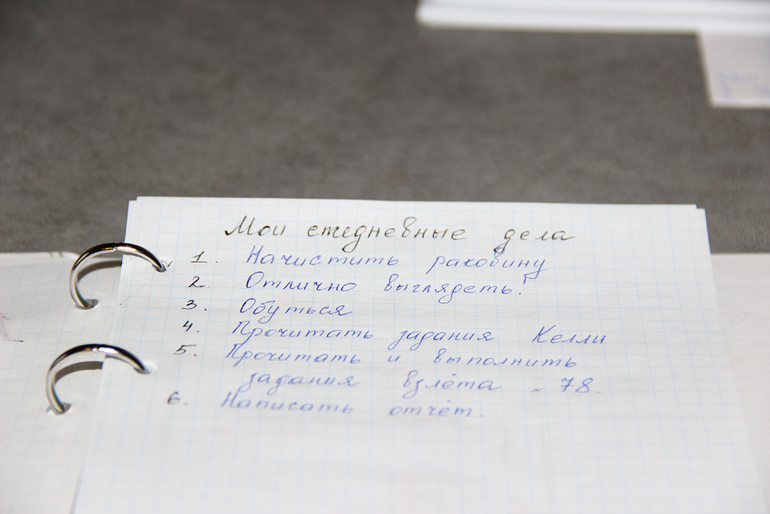 Мои ежедневные дела
1. Начистить раковину
2. Отлично выглядеть!
3. Обуться
4. Прочитать задания Келли
5. Прочитать и выполнить
задания взлёта - 78.
6. Написать отчёт.